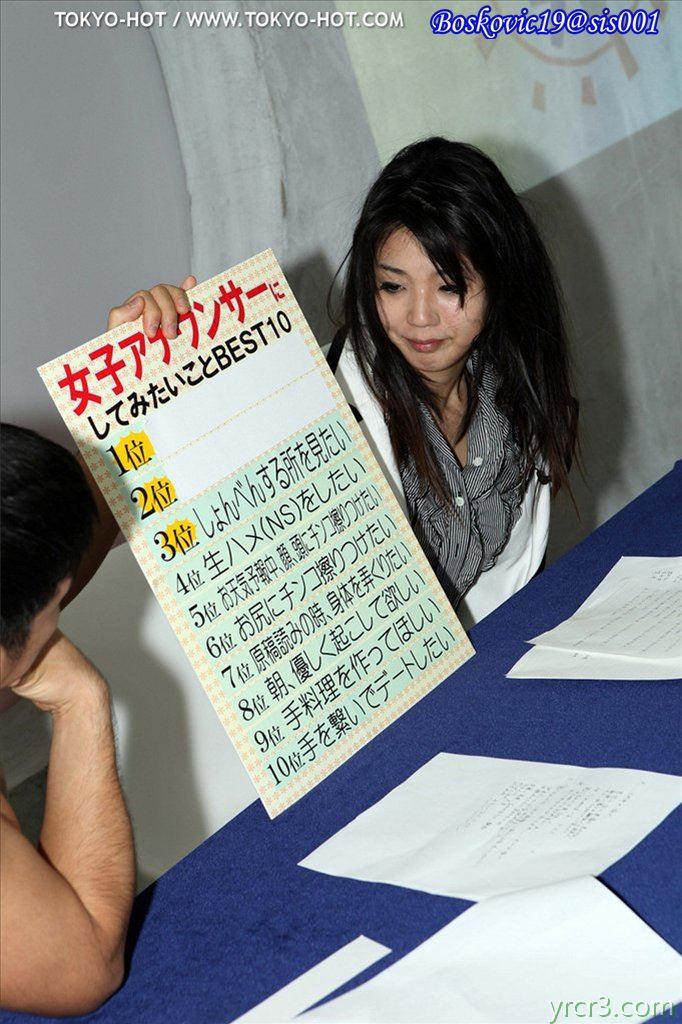 TOKYO-HOT / WWW.TOKYO-HOT.COM
Boskovic19@sis001
女子アナウンサーに
してみたいことBEST10
1位
2位
3位 しょんべんする所を見たい
4位 生ハメ(NS)をしたい
5位 お天気予報中、顔、頭にチンコ擦りつけたい
6位 お尻にチンコ擦りつけたい
7位 原稿読みの時、身体を弄くりたい
8位 朝、優しく起こして欲しい
9位 手料理を作ってほしい
10位 手を繋いでデートしたい
yrcr3.com